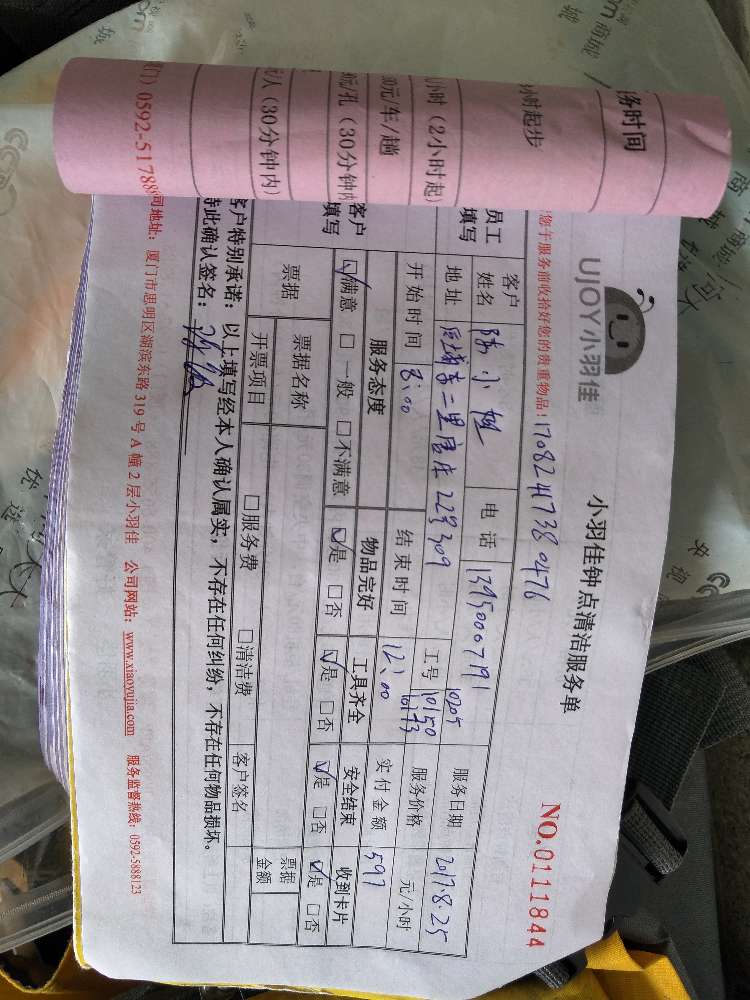 务时间
小时起步
小时（2小时起）
30元/车/趟
元/孔（30分钟内
元/人（30分钟内）
UJOY小羽佳
小羽佳钟点清洁服务单
NO.0111844
您于服务前收拾好您的贵重物品！170824738 0476
员工填写
客户姓名 陈小姐 电话 13950007191 工号 10205 10150 10173 服务日期 2017.8.25
地址 后埔李二里唐庄22号309 服务价格 元/小时
开始时间 8:00 结束时间 12:00 实付金额 597
客户填写
服务态度 物品完好 工具齐全 安全结束 收到卡片
☑满意 □一般 □不满意 ☑是 □否 ☑是 □否 ☑是 □否 ☑是 □否
票据 票据名称 票据金额
开票项目 □服务费 □清洁费 客户签名
客户特别承诺：以上填写经本人确认属实，不存在任何纠纷，不存在任何物品损坏。
持此确认签名：
厦门）0592-51788
司地址：厦门市思明区湖滨东路319号A幢2层小羽佳 公司网站：www.xiaoyujia.com 服务监督热线：0592-5888123